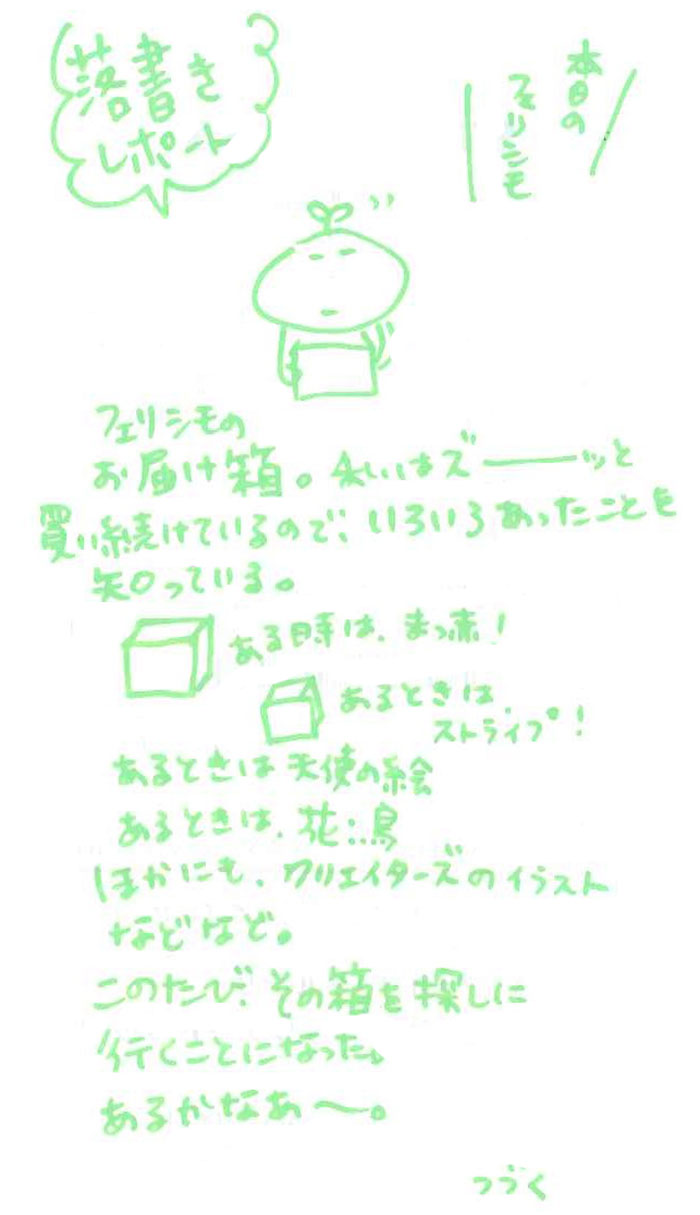 落書き
レポート
本日の
フェリシモ
フェリシモの
お届け箱。私はズーーッと
買い続けているので、いろいろあったことを
知っている。
ある時は、まっ赤！
あるときは、
ストライプ！
あるときは天使の絵
あるときは、花、鳥
ほかにも、クリエイターズのイラスト
などなど。
このたび、その箱を探しに
行くことになった。
あるかなあ〜。
つづく